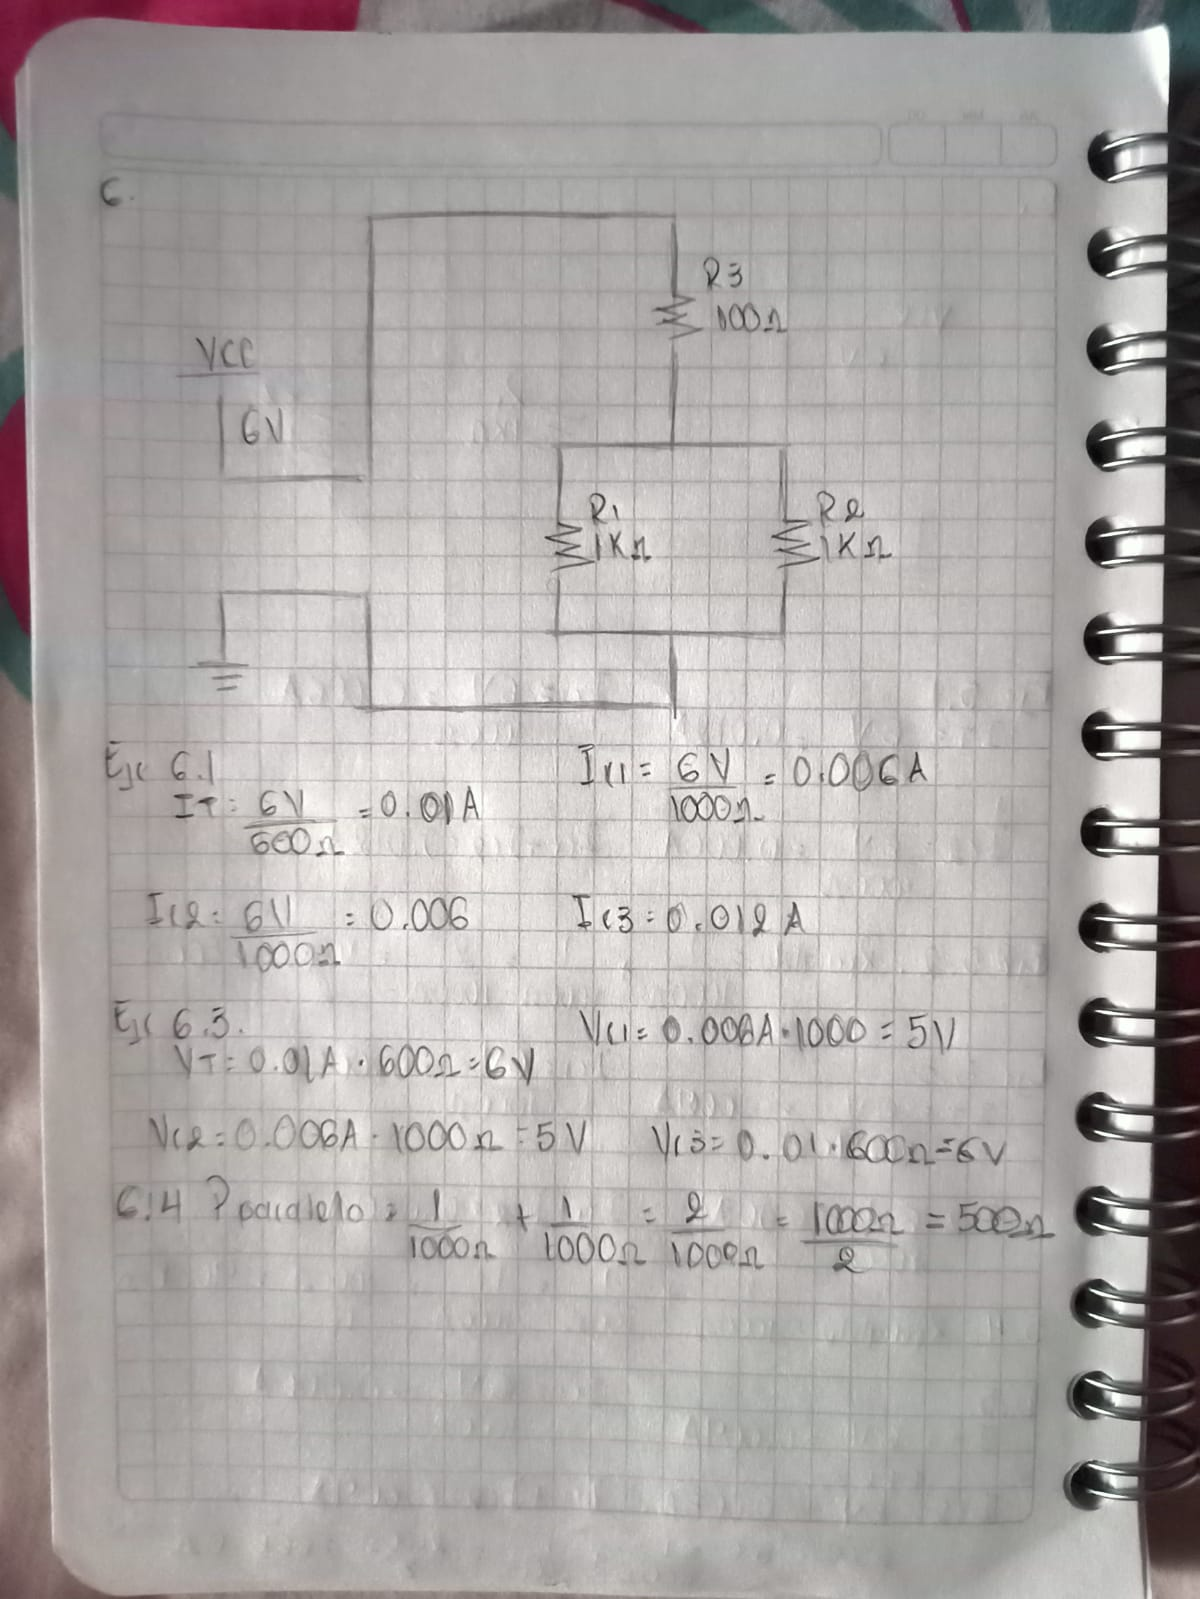 6.
R3
100Ω
VCC
6V
R1
1KΩ
R2
1KΩ
Ejr 6.1
IT = 6V/600Ω = 0.01A
Ir1 = 6V/1000Ω = 0.006A
Ir2 = 6V/1000Ω = 0.006
Ir3 = 0.012A
Ejr 6.3.
VT = 0.01A · 600Ω = 6V
Vr1 = 0.006A · 1000 = 5V
Vr2 = 0.006A · 1000Ω = 5V
Vr3 = 0.01 · 600Ω = 6V
6.4 R paralelo = 1/1000Ω + 1/1000Ω = 2/1000Ω = 1000Ω/2 = 500Ω